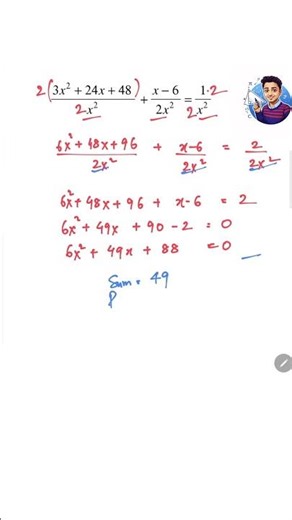 2(3x² + 24x + 48)/2x² + x − 6/2x² = 1·2/2x²
6x² + 48x + 96/2x² + x-6/2x² = 2/2x²
6x² + 48x + 96 + x - 6 = 2
6x² + 49x + 90 - 2 = 0
6x² + 49x + 88 = 0
Sum = 49
P